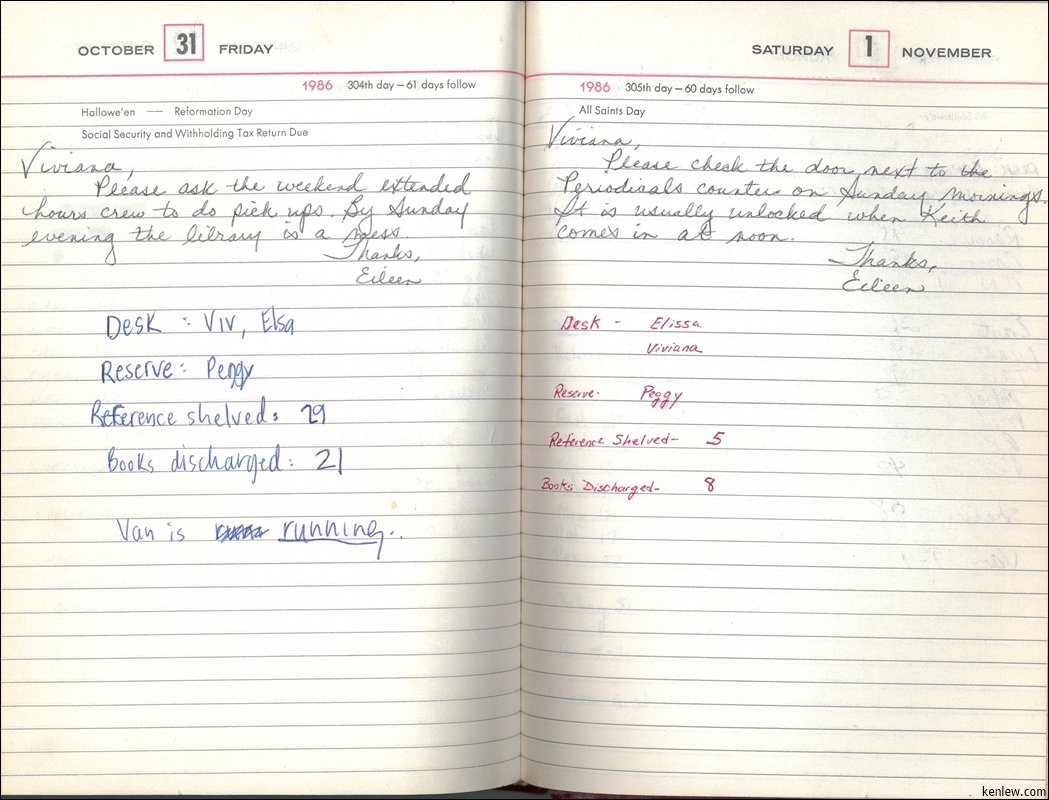 OCTOBER 31 FRIDAY
1986 304th day — 61 days follow
Hallowe'en — Reformation Day
Social Security and Withholding Tax Return Due
Viviana,
Please ask the weekend extended
hours crew to do pick ups. By Sunday
evening the library is a mess.
Thanks,
Eileen
Desk : Viv, Elsa
Reserve: Peggy
Reference shelved: 29
Books discharged: 21
Van is running..
SATURDAY 1 NOVEMBER
1986 305th day — 60 days follow
All Saints Day
Viviana,
Please check the door next to the
Periodicals counter on Sunday mornings.
It is usually unlocked when Keith
comes in at noon.
Thanks,
Eileen
Desk - Elissa
Viviana
Reserve- Peggy
Reference Shelved- 5
Books Discharged- 8
kenlew.com